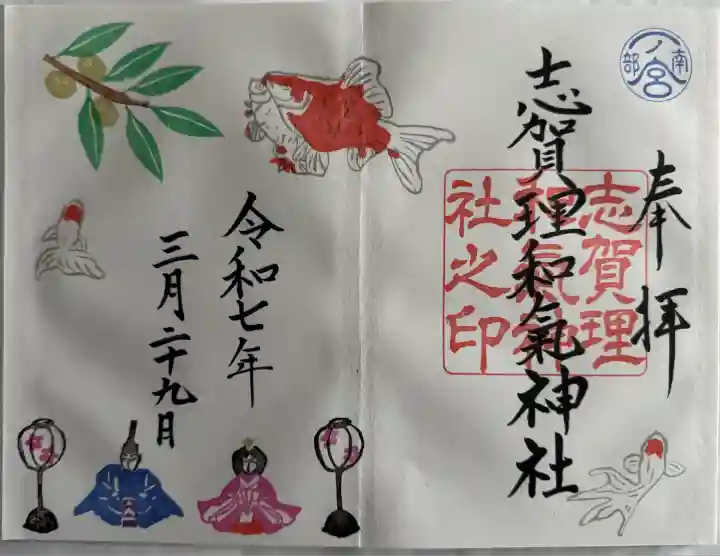 南部一ノ宮
奉拝
志賀理和氣神社
志賀理
和氣神
社之印
令和七年
三月二十九日